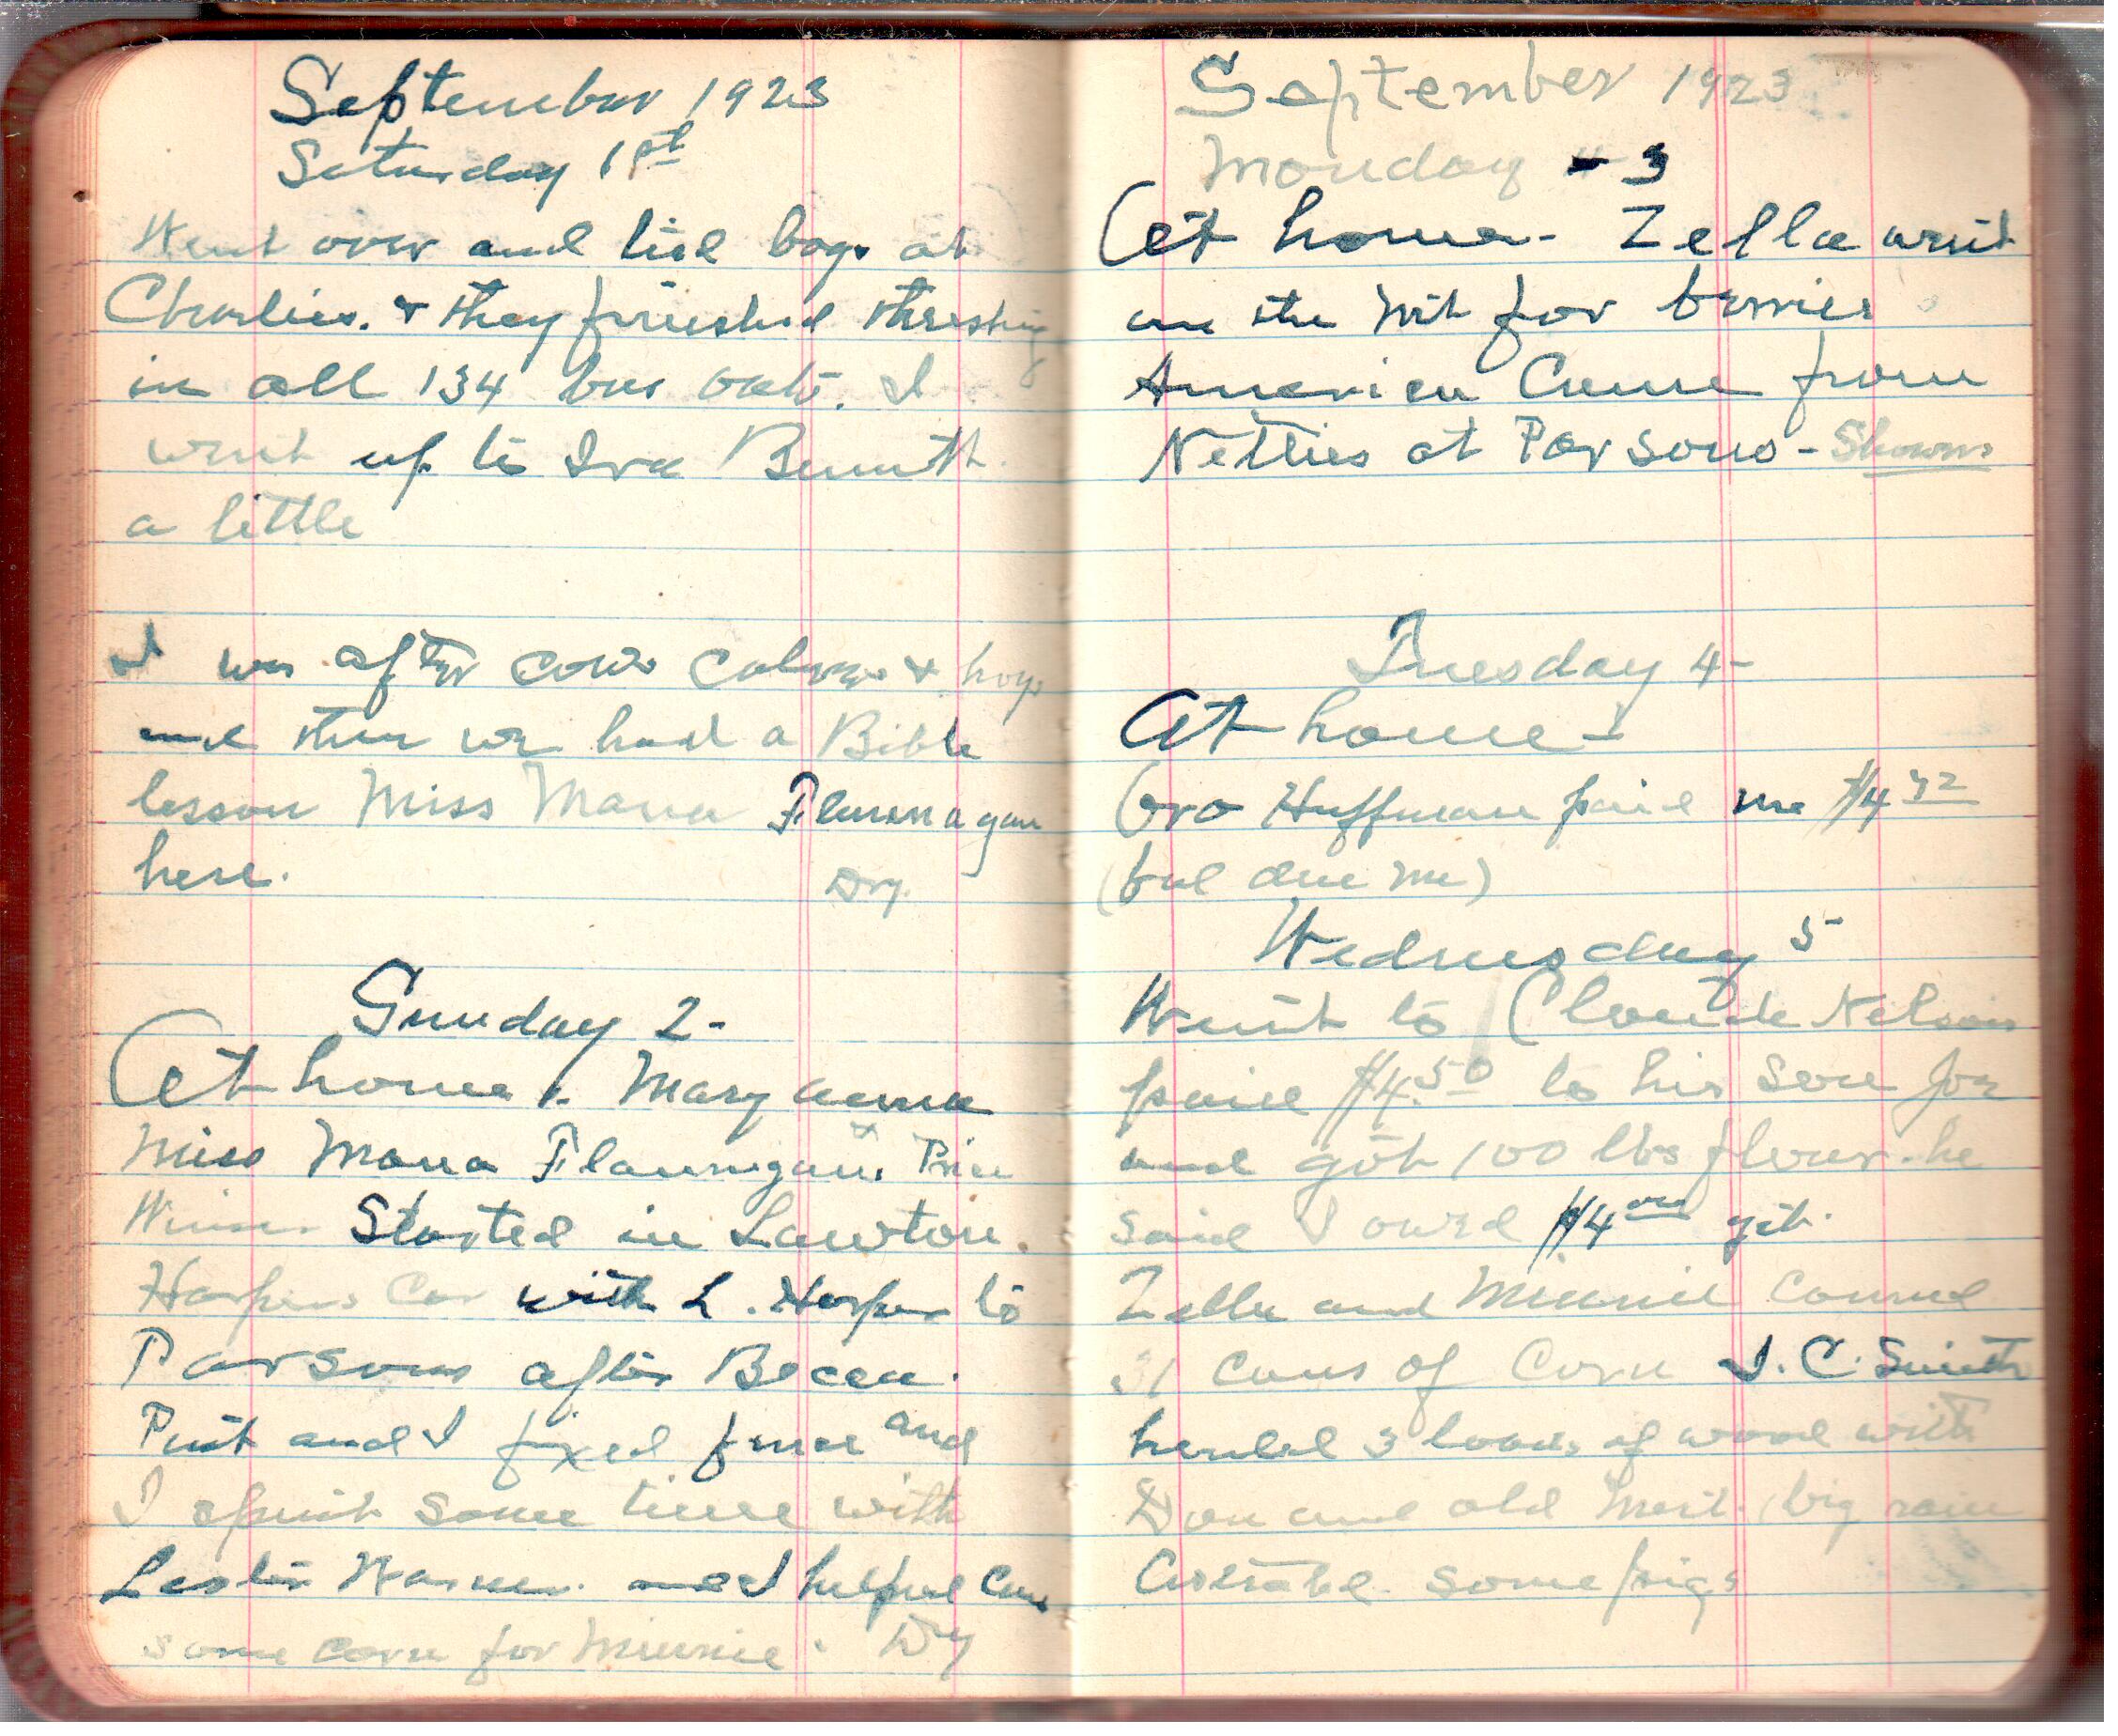 September 1923
Saturday 1st
Went over and tied bags at
Charlies. & they finished threshing
in all 134 bus oats. I
went up to Ira Bennett
a little
I was after cows calves & hogs
and then we had a Bible
lesson Miss Mana Flannagan
here. Dry
Sunday 2-
At home. Mary anna
Miss Mana Flannagan.
Started in Lawton.
Harpers Car with L. Harper to
Parsons after
and I fixed fence and
I spent some time with
Warner. and I helped can
some corn for Minnie. Dry
September 1923
Monday - 3
At home - Zella went
on the for berries
America Came from
Netties at Parsons -
Tuesday 4-
At home -
Bro Huffman paid me $4 32
(bal due me)
Wednesday 5
Went to Claude Nelson
paid $4.50 to his son
and got 100 lbs flour. he
said I owed $4 00 yet.
Zella and Minnie canned
cans of corn J. C. Smith
hauled 3 loads of wood with
and old big rain
some pigs